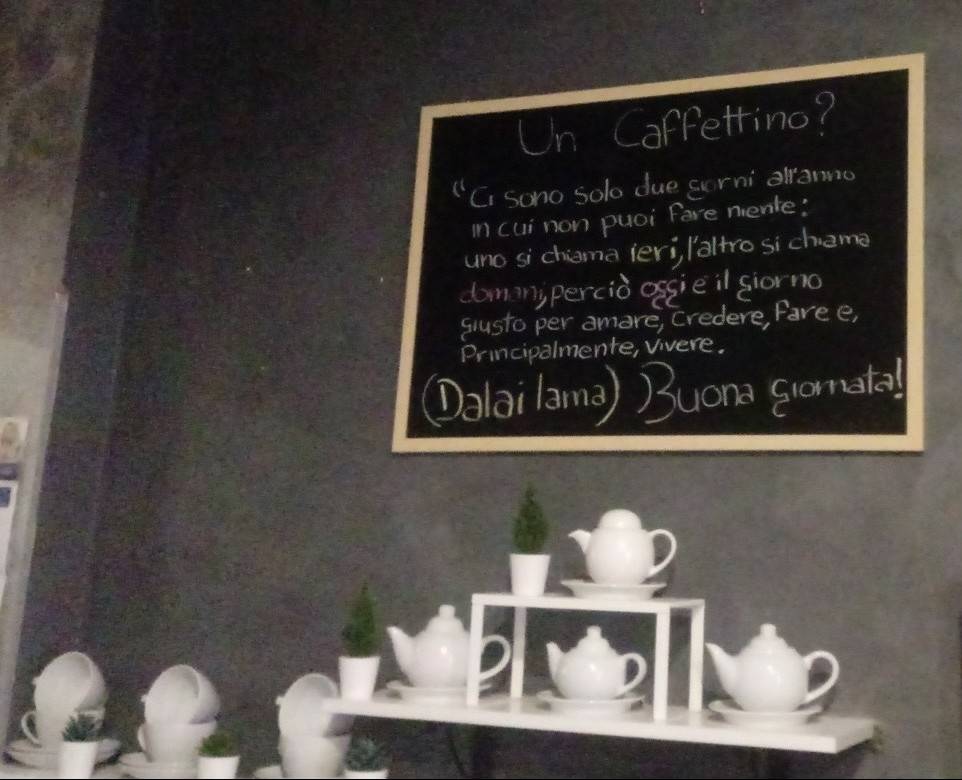 Un Caffettino?
"Ci sono solo due giorni all'anno
in cui non puoi fare niente:
uno si chiama ieri, l'altro si chiama
domani, perciò oggi è il giorno
giusto per amare, Credere, fare e,
Principalmente, vivere.
(Dalai lama) Buona giornata!